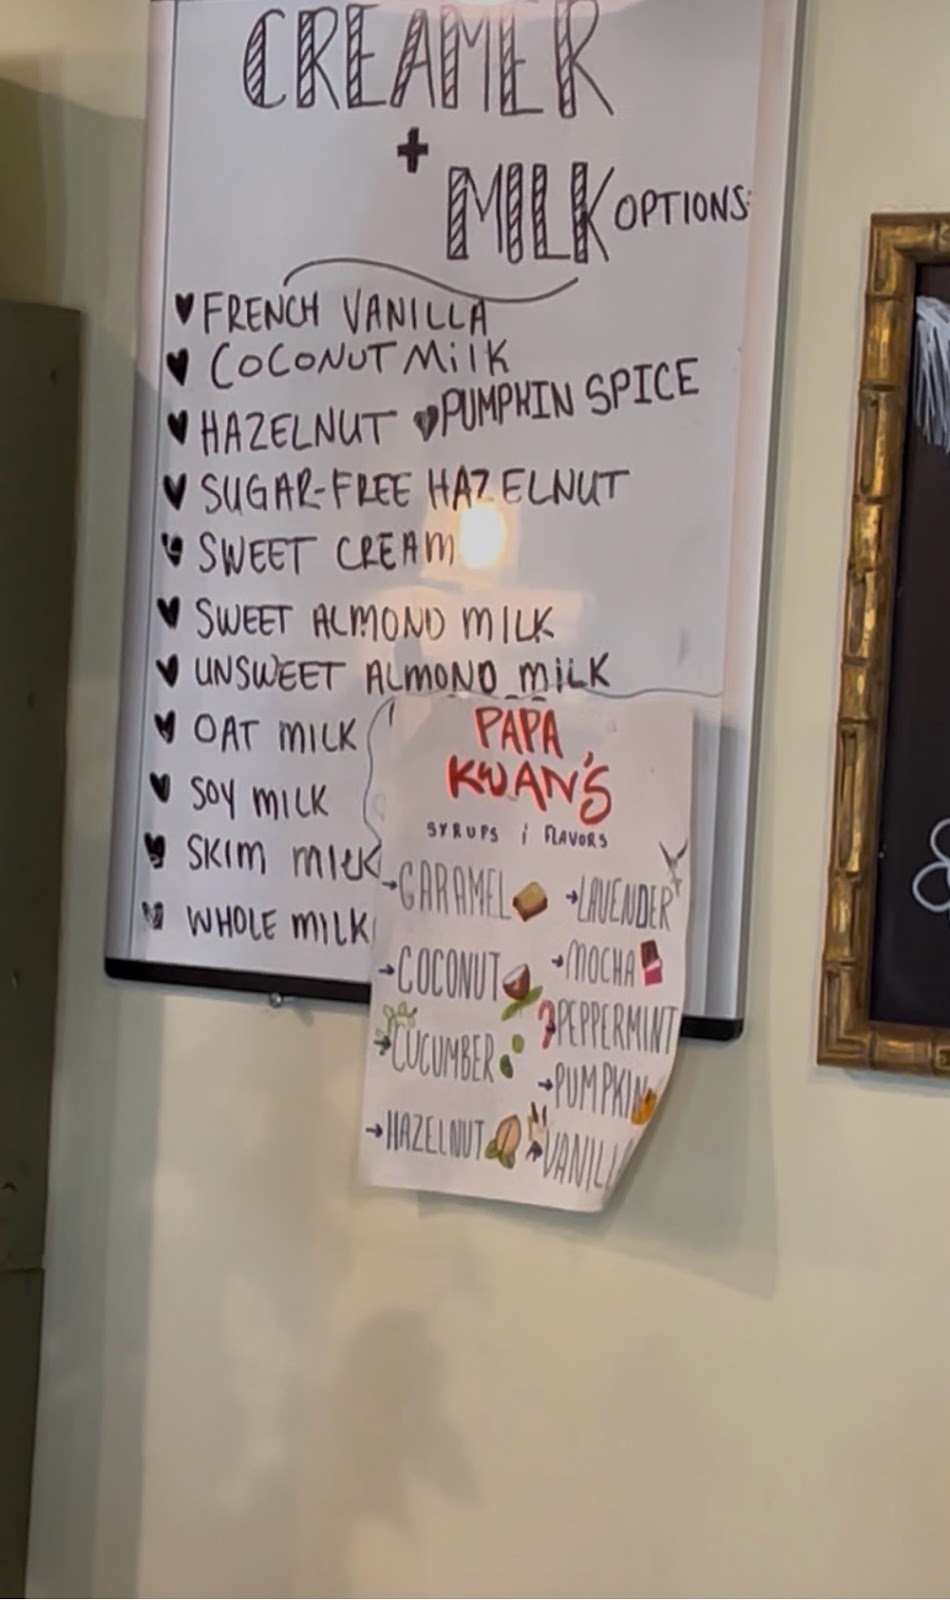 CREAMER
+
MILK OPTIONS:
FRENCH VANILLA
COCONUT MILK
HAZELNUT PUMPKIN SPICE
SUGAR-FREE HAZELNUT
SWEET CREAM
SWEET ALMOND MILK
UNSWEET ALMOND MILK
OAT MILK
SOY MILK
SKIM MILK
WHOLE MILK
PAPA
KWAN'S
SYRUPS & FLAVORS
→CARAMEL →LAVENDER
→COCONUT →MOCHA
→CUCUMBER PEPPERMINT
→HAZELNUT →PUMPKIN
→VANILL